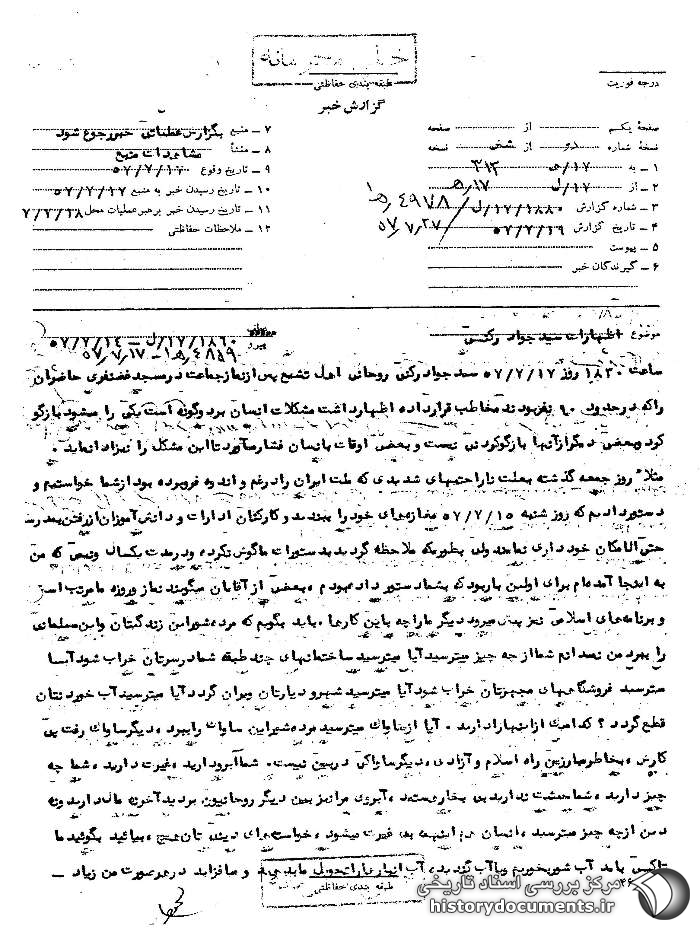 خیلی محرمانه
طبقه بندی حفاظتی
گزارش خبر
درجه فوریت
صفحه یکم از صفحه
نسخه شماره دو از شش نسخه
۱ ـ به ۱۷/ه‍ ۳۱۲
۲ ـ از ۱۷/ل ۱۷/ه‍
۳ ـ شماره گزارش ۱۷/۱۸۸۰/ل
۴ ـ تاریخ گزارش ۵۷/۷/۱۹
۵ ـ پیوست
۶ ـ گیرندگان خبر
۴۹۷۸/ه‍ ۱
۵۷/۷/۲۷
۷ ـ منبع بگزارش عملیاتی خبر رجوع شود
۸ ـ منشأ مشاهدات منبع
۹ ـ تاریخ وقوع ۵۷/۷/۱۷
۱۰ ـ تاریخ رسیدن خبر به منبع ۵۷/۷/۱۷
۱۱ ـ تاریخ رسیدن خبر برهبر عملیات محل ۷/۷/۱۸
۱۲ ـ ملاحظات حفاظتی
موضوع اظهارات سید جواد رکنی
پیرو ۱۷/۱۸۶۰/ل ـ ۵۷/۷/۱۴
۴۸۵۹/ه‍ ۱ ـ ۵۷/۷/۱۷
ساعت ۱۸۳۰ روز ۵۷/۷/۱۷ سید جواد رکنی روحانی اهل تشیع پس از نماز جماعت در مسجد غضنفری حاضران
را که در حدود ۹۰ نفر بودند مخاطب قرار داده اظهار داشت مشکلات انسان بر دو گونه است یکی را میشود بازگو
کرد و بعضی دیگر از آنها بازگو کردنی نیست و بعضی اوقات بانسان فشار میآورد تا این مشکل را نیز ادا نماید .
مثلا" روز جمعه گذشته بعلت ناراحتیهای شدیدی که ملت ایران را در غم و اندوه فرو برده بود از شما خواستیم و
دستور دادیم که روز شنبه ۵۷/۷/۱۵ مغازه‌های خود را ببندید و کارکنان ادارات و دانش آموزان از رفتن بمدرسه
حتی الامکان خود داری نمایند ولی بطوریکه ملاحظه گردید بدستورات ما گوش نکرده و در مدت یکسال و نیمی که من
به اینجا آمده‌ام برای اولین بار بود که بشما دستور داده بودم ، بعضی از آقایان میگویند نماز و روزه ما مرتب است
و برنامه‌های اسلامی نیز پیش میرود دیگر ما را چه باین کارها ، باید بگویم که مرده شور این زندگیتان و این مسلمانی
را ببرد من نمیدانم شما از چه چیز میترسید آیا میترسید ساختمانهای چند طبقه شما در سرتان خراب شود آیا
میترسید فروشگاههای مجهزتان خراب شود آیا میترسید شهر و دیارتان ویران گردد آیا میترسید آب خوردنتان
قطع گردد ؟ کدامیک از اینها را دارید . آیا از ساواک میترسید مرده شور این ساواک را ببرد ، دیگر ساواک رفت پی
کارش ، بخاطر مبارزین راه اسلام و آزادی ، دیگر ساواکی در بین نیست . شما آبرو دارید ، غیرت دارید ، شما چه
چیز دارید ، شما حیثیت ندارید بی بخار هستید ، آبروی مرا نیز بین دیگر روحانیون بردید آخر نه مال دارید و نه
دین از چه چیز میترسید ، انسان هم اینهمه بی غیرت میشود ، خواسته‌های دینی تان هیچ ، بیائید بگوئید ما
تا کی باید آب شور بخوریم و یا آب گندیده ، آب انبارها را تحویل ما بدهید و ما فراید در هر صورت من زیاد ـ
طبقه بندی حفاظتی
مرکز بررسی اسناد تاریخی
historydocuments.ir